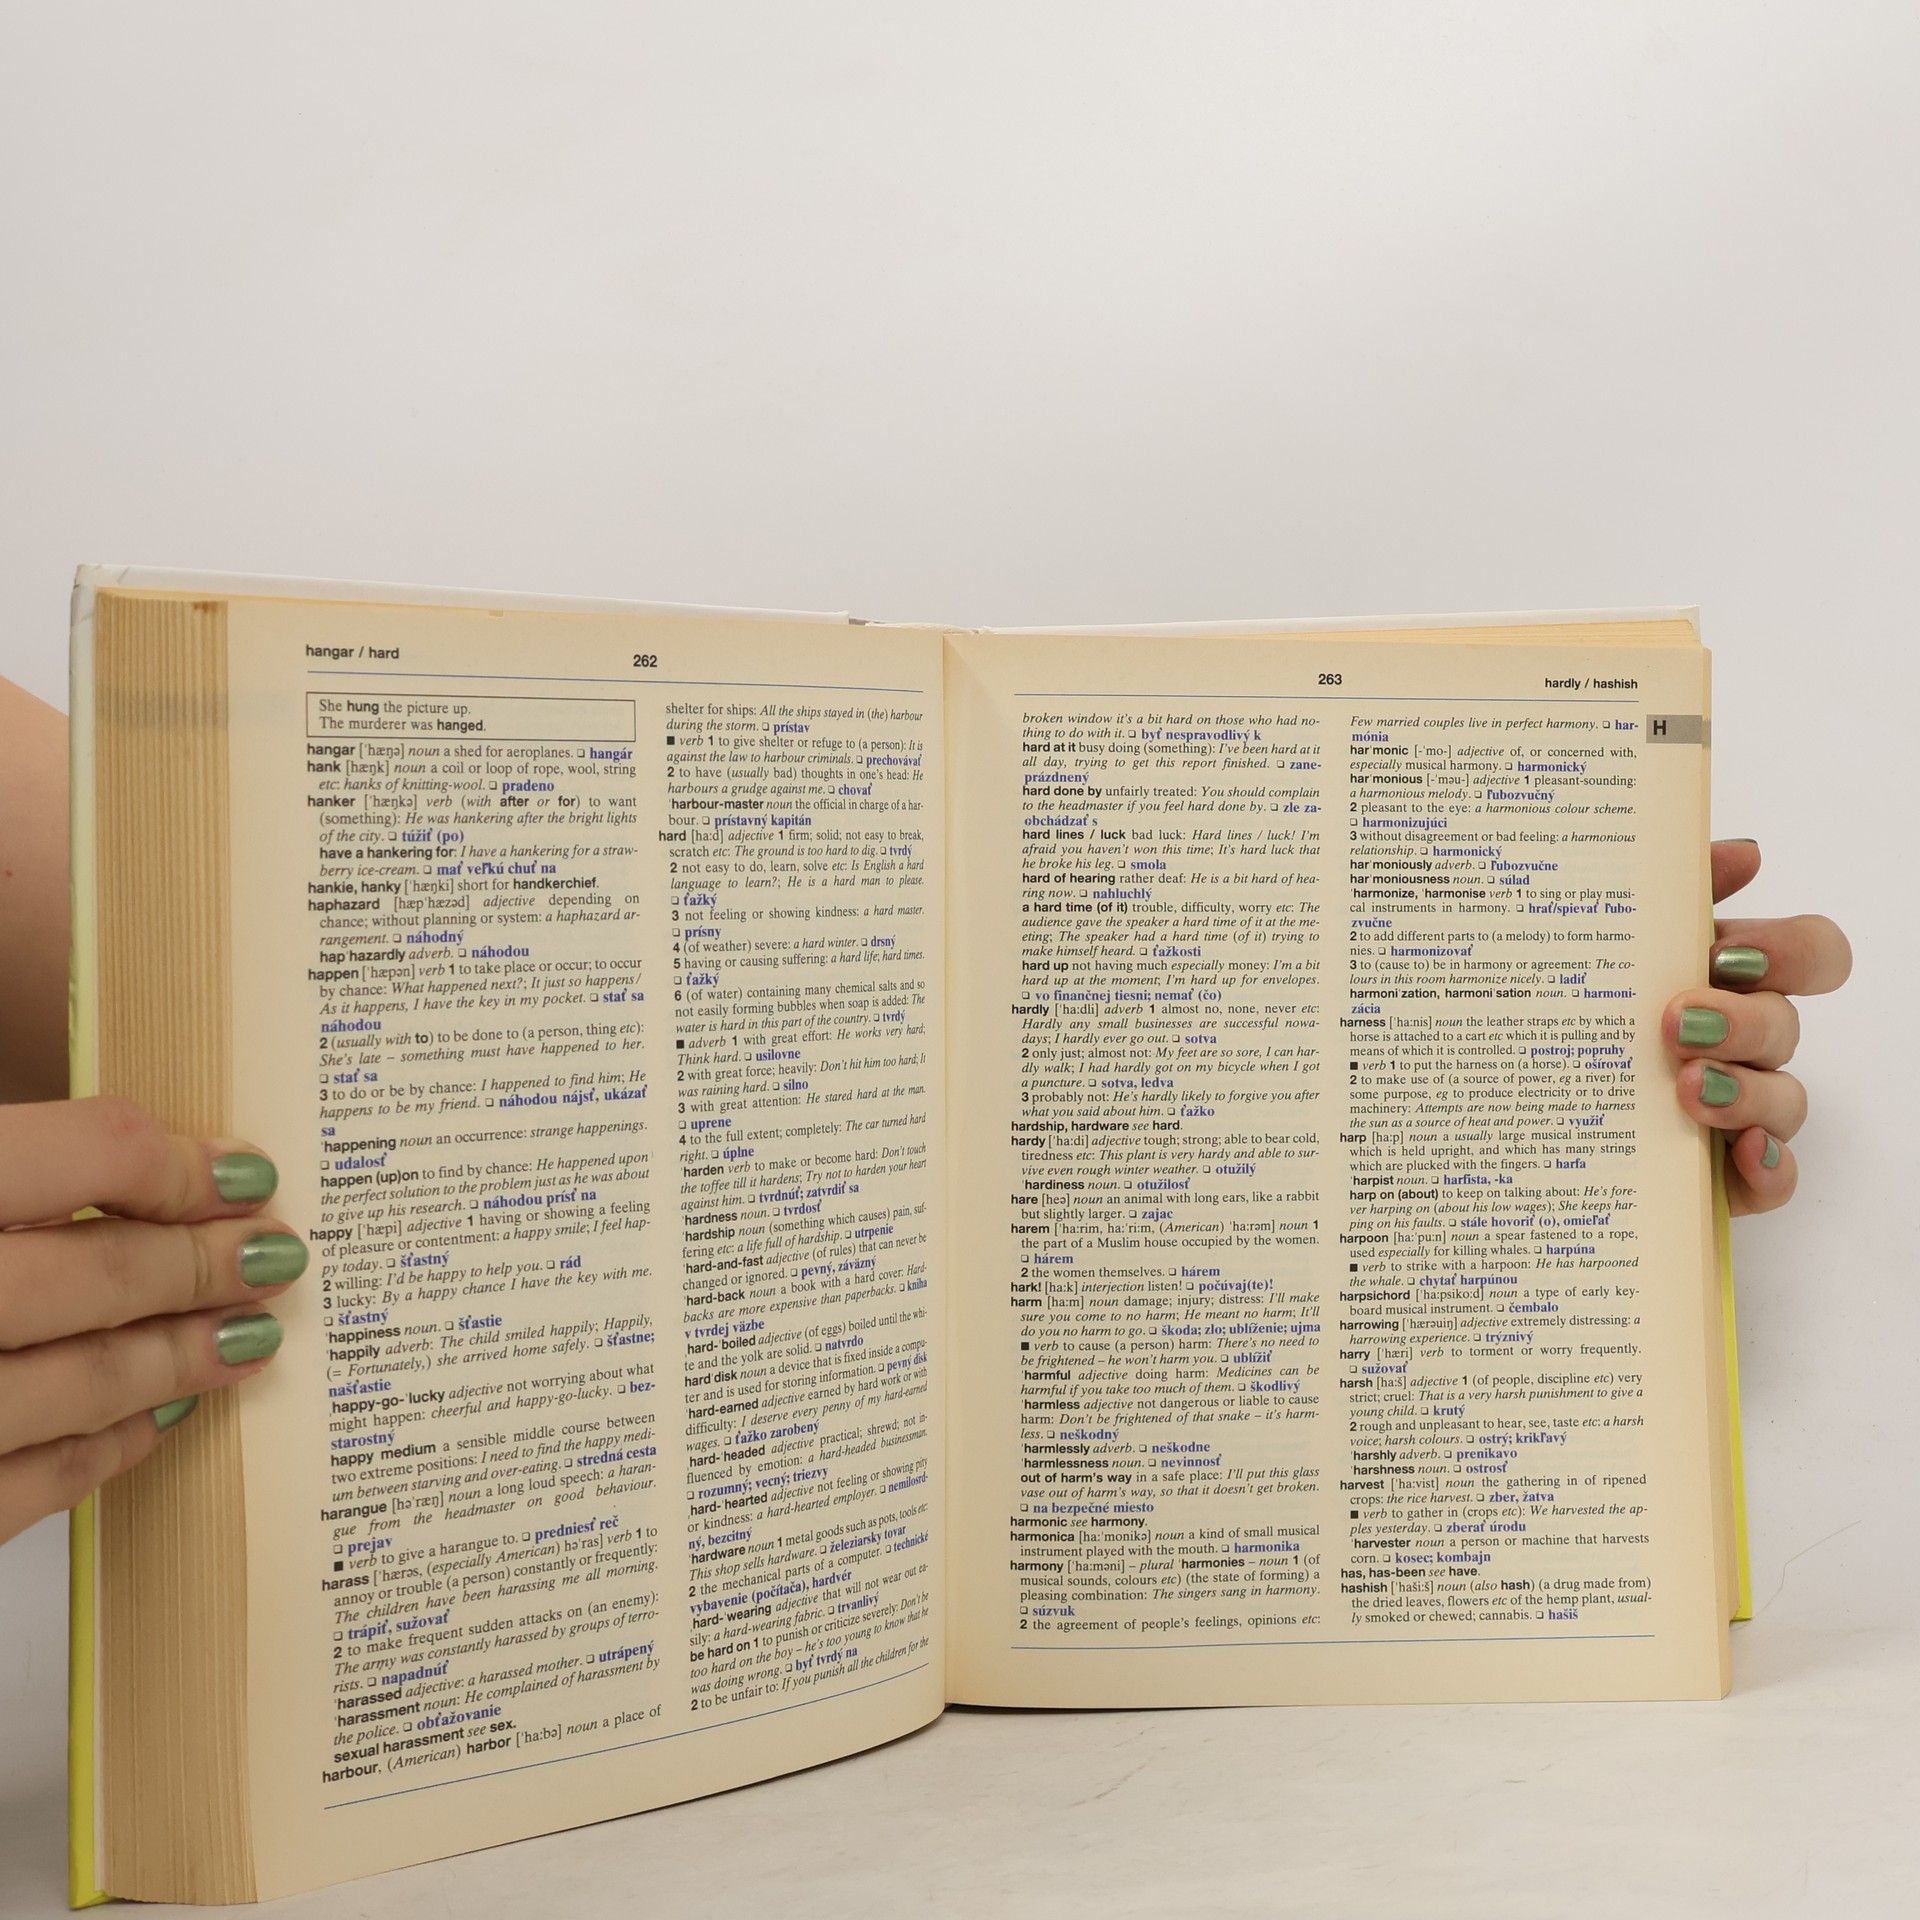 hangar / hard
262
She hung the picture up.
The murderer was hanged.
hangar [ˈhæŋə] noun a shed for aeroplanes. ❑ hangár
hank [hæŋk] noun a coil or loop of rope, wool, string
etc: hanks of knitting-wool. ❑ pradeno
hanker [ˈhæŋkə] verb (with after or for) to want
(something): He was hankering after the bright lights
of the city. ❑ túžiť (po)
have a hankering for: I have a hankering for a straw-
berry ice-cream. ❑ mať veľkú chuť na
hankie, hanky [ˈhæŋki] short for handkerchief.
haphazard [hæpˈhæzəd] adjective depending on
chance; without planning or system: a haphazard ar-
rangement. ❑ náhodný
hapˈhazardly adverb. ❑ náhodou
happen [ˈhæpən] verb 1 to take place or occur; to occur
by chance: What happened next?; It just so happens/
As it happens, I have the key in my pocket. ❑ stať sa
náhodou
2 (usually with to) to be done to (a person, thing etc):
She's late – something must have happened to her.
❑ stať sa
3 to do or be by chance: I happened to find him; He
happens to be my friend. ❑ náhodou nájsť, ukázať
sa
ˈhappening noun an occurrence: strange happenings.
❑ udalosť
happen (up)on to find by chance: He happened upon
the perfect solution to the problem just as he was about
to give up his research. ❑ náhodou prísť na
happy [ˈhæpi] adjective 1 having or showing a feeling
of pleasure or contentment: a happy smile; I feel hap-
py today. ❑ šťastný
2 willing: I'd be happy to help you. ❑ rád
3 lucky: By a happy chance I have the key with me.
❑ šťastný
ˈhappiness noun. ❑ šťastie
ˈhappily adverb: The child smiled happily; Happily,
(= Fortunately,) she arrived home safely. ❑ šťastne;
našťastie
ˌhappy-go-ˈlucky adjective not worrying about what
might happen: cheerful and happy-go-lucky. ❑ bez-
starostný
happy medium a sensible middle course between
two extreme positions: I need to find the happy medi-
um between starving and over-eating. ❑ stredná cesta
harangue [həˈræŋ] noun a long loud speech: a haran-
gue from the headmaster on good behaviour.
❑ prejav
■ verb to give a harangue to. ❑ predniesť reč
harass [ˈhærəs, (especially American) həˈras] verb 1 to
annoy or trouble (a person) constantly or frequently:
The children have been harassing me all morning.
❑ trápiť, sužovať
2 to make frequent sudden attacks on (an enemy):
The army was constantly harassed by groups of terro-
rists. ❑ napadnúť
ˈharassed adjective: a harassed mother. ❑ utrápený
ˈharassment noun: He complained of harassment by
the police. ❑ obťažovanie
sexual harassment see sex.
harbour, (American) harbor [ˈha:bə] noun a place of
shelter for ships: All the ships stayed in (the) harbour
during the storm. ❑ prístav
■ verb 1 to give shelter or refuge to (a person): It is
against the law to harbour criminals. ❑ prechovávať
2 to have (usually bad) thoughts in one's head: He
harbours a grudge against me. ❑ chovať
ˈharbour-master noun the official in charge of a har-
bour. ❑ prístavný kapitán
hard [ha:d] adjective 1 firm; solid; not easy to break,
scratch etc: The ground is too hard to dig. ❑ tvrdý
2 not easy to do, learn, solve etc: Is English a hard
language to learn?; He is a hard man to please.
❑ ťažký
3 not feeling or showing kindness: a hard master.
❑ prísny
4 (of weather) severe: a hard winter. ❑ drsný
5 having or causing suffering: a hard life; hard times.
❑ ťažký
6 (of water) containing many chemical salts and so
not easily forming bubbles when soap is added: The
water is hard in this part of the country. ❑ tvrdý
■ adverb 1 with great effort: He works very hard;
Think hard. ❑ usilovne
2 with great force; heavily: Don't hit him too hard; It
was raining hard. ❑ silno
3 with great attention: He stared hard at the man.
❑ uprene
4 to the full extent; completely: The car turned hard
right. ❑ úplne
ˈharden verb to make or become hard: Don't touch
the toffee till it hardens; Try not to harden your heart
against him. ❑ tvrdnúť; zatvrdiť sa
ˈhardness noun. ❑ tvrdosť
ˈhardship noun (something which causes) pain, suf-
fering etc: a life full of hardship. ❑ utrpenie
ˈhard-and-fast adjective (of rules) that can never be
changed or ignored. ❑ pevný, záväzný
ˈhard-back noun a book with a hard cover: Hard-
backs are more expensive than paperbacks. ❑ kniha
v tvrdej väzbe
ˌhard-ˈboiled adjective (of eggs) boiled until the whi-
te and the yolk are solid. ❑ natvrdo
hardˈdisk noun a device that is fixed inside a compu-
ter and is used for storing information. ❑ pevný disk
ˈhard-earned adjective earned by hard work or with
difficulty: I deserve every penny of my hard-earned
wages. ❑ ťažko zarobený
ˌhard-ˈheaded adjective practical; shrewd; not in-
fluenced by emotion: a hard-headed businessman.
❑ rozumný; vecný; triezvy
ˌhard-ˈhearted adjective not feeling or showing pity
or kindness: a hard-hearted employer. ❑ nemilosrd-
ný, bezcitný
ˈhardware noun 1 metal goods such as pots, tools etc:
This shop sells hardware. ❑ železiarsky tovar
2 the mechanical parts of a computer. ❑ technické
vybavenie (počítača), hardvér
ˌhard-ˈwearing adjective that will not wear out ea-
sily: a hard-wearing fabric. ❑ trvanlivý
be hard on 1 to punish or criticize severely: Don't be
too hard on the boy – he's too young to know that he
was doing wrong. ❑ byť tvrdý na
2 to be unfair to: If you punish all the children for the
263
hardly / hashish
H
broken window it's a bit hard on those who had no-
thing to do with it. ❑ byť nespravodlivý k
hard at it busy doing (something): I've been hard at it
all day, trying to get this report finished. ❑ zane-
prázdnený
hard done by unfairly treated: You should complain
to the headmaster if you feel hard done by. ❑ zle za-
obchádzať s
hard lines / luck bad luck: Hard lines / luck! I'm
afraid you haven't won this time; It's hard luck that
he broke his leg. ❑ smola
hard of hearing rather deaf: He is a bit hard of hea-
ring now. ❑ nahluchlý
a hard time (of it) trouble, difficulty, worry etc: The
audience gave the speaker a hard time of it at the me-
eting; The speaker had a hard time (of it) trying to
make himself heard. ❑ ťažkosti
hard up not having much especially money: I'm a bit
hard up at the moment; I'm hard up for envelopes.
❑ vo finančnej tiesni; nemať (čo)
hardly [ˈha:dli] adverb 1 almost no, none, never etc:
Hardly any small businesses are successful nowa-
days; I hardly ever go out. ❑ sotva
2 only just; almost not: My feet are so sore, I can har-
dly walk; I had hardly got on my bicycle when I got
a puncture. ❑ sotva, ledva
3 probably not: He's hardly likely to forgive you after
what you said about him. ❑ ťažko
hardship, hardware see hard.
hardy [ˈha:di] adjective tough; strong; able to bear cold,
tiredness etc: This plant is very hardy and able to sur-
vive even rough winter weather. ❑ otužilý
ˈhardiness noun. ❑ otužilosť
hare [heə] noun an animal with long ears, like a rabbit
but slightly larger. ❑ zajac
harem [ˈha:rim, ha:ˈri:m, (American) ˈha:rəm] noun 1
the part of a Muslim house occupied by the women.
❑ hárem
2 the women themselves. ❑ hárem
hark! [ha:k] interjection listen! ❑ počúvaj(te)!
harm [ha:m] noun damage; injury; distress: I'll make
sure you come to no harm; He meant no harm; It'll
do you no harm to go. ❑ škoda; zlo; ublíženie; ujma
■ verb to cause (a person) harm: There's no need to
be frightened – he won't harm you. ❑ ublížiť
ˈharmful adjective doing harm: Medicines can be
harmful if you take too much of them. ❑ škodlivý
ˈharmless adjective not dangerous or liable to cause
harm: Don't be frightened of that snake – it's harm-
less. ❑ neškodný
ˈharmlessly adverb. ❑ neškodne
ˈharmlessness noun. ❑ nevinnosť
out of harm's way in a safe place: I'll put this glass
vase out of harm's way, so that it doesn't get broken.
❑ na bezpečné miesto
harmonic see harmony.
harmonica [ha:ˈmonikə] noun a kind of small musical
instrument played with the mouth. ❑ harmonika
harmony [ˈha:məni] – plural ˈharmonies – noun 1 (of
musical sounds, colours etc) (the state of forming) a
pleasing combination: The singers sang in harmony.
❑ súzvuk
2 the agreement of people's feelings, opinions etc:
Few married couples live in perfect harmony. ❑ har-
mónia
harˈmonic [-ˈmo-] adjective of, or concerned with,
especially musical harmony. ❑ harmonický
harˈmonious [-ˈməu-] adjective 1 pleasant-sounding:
a harmonious melody. ❑ ľubozvučný
2 pleasant to the eye: a harmonious colour scheme.
❑ harmonizujúci
3 without disagreement or bad feeling: a harmonious
relationship. ❑ harmonický
harˈmoniously adverb. ❑ ľubozvučne
harˈmoniousness noun. ❑ súlad
ˈharmonize, ˈharmonise verb 1 to sing or play musi-
cal instruments in harmony. ❑ hrať/spievať ľubo-
zvučne
2 to add different parts to (a melody) to form harmo-
nies. ❑ harmonizovať
3 to (cause to) be in harmony or agreement: The co-
lours in this room harmonize nicely. ❑ ladiť
harmoniˈzation, harmoniˈsation noun. ❑ harmoni-
zácia
harness [ˈha:nis] noun the leather straps etc by which a
horse is attached to a cart etc which it is pulling and by
means of which it is controlled. ❑ postroj; popruhy
■ verb 1 to put the harness on (a horse). ❑ ošírovať
2 to make use of (a source of power, eg a river) for
some purpose, eg to produce electricity or to drive
machinery: Attempts are now being made to harness
the sun as a source of heat and power. ❑ využiť
harp [ha:p] noun a usually large musical instrument
which is held upright, and which has many strings
which are plucked with the fingers. ❑ harfa
ˈharpist noun. ❑ harfista, -ka
harp on (about) to keep on talking about: He's fore-
ver harping on (about his low wages); She keeps har-
ping on his faults. ❑ stále hovoriť (o), omieľať
harpoon [ha:ˈpu:n] noun a spear fastened to a rope,
used especially for killing whales. ❑ harpúna
■ verb to strike with a harpoon: He has harpooned
the whale. ❑ chytať harpúnou
harpsichord [ˈha:psiko:d] noun a type of early key-
board musical instrument. ❑ čembalo
harrowing [ˈhærəuiŋ] adjective extremely distressing: a
harrowing experience. ❑ trýznivý
harry [ˈhæri] verb to torment or worry frequently.
❑ sužovať
harsh [ha:š] adjective 1 (of people, discipline etc) very
strict; cruel: That is a very harsh punishment to give a
young child. ❑ krutý
2 rough and unpleasant to hear, see, taste etc: a harsh
voice; harsh colours. ❑ ostrý; krikľavý
ˈharshly adverb. ❑ prenikavo
ˈharshness noun. ❑ ostrosť
harvest [ˈha:vist] noun the gathering in of ripened
crops: the rice harvest. ❑ zber, žatva
■ verb to gather in (crops etc): We harvested the ap-
ples yesterday. ❑ zberať úrodu
ˈharvester noun a person or machine that harvests
corn. ❑ kosec; kombajn
has, has-been see have.
hashish [ˈhaši:š] noun (also hash) (a drug made from)
the dried leaves, flowers etc of the hemp plant, usual-
ly smoked or chewed; cannabis. ❑ hašiš